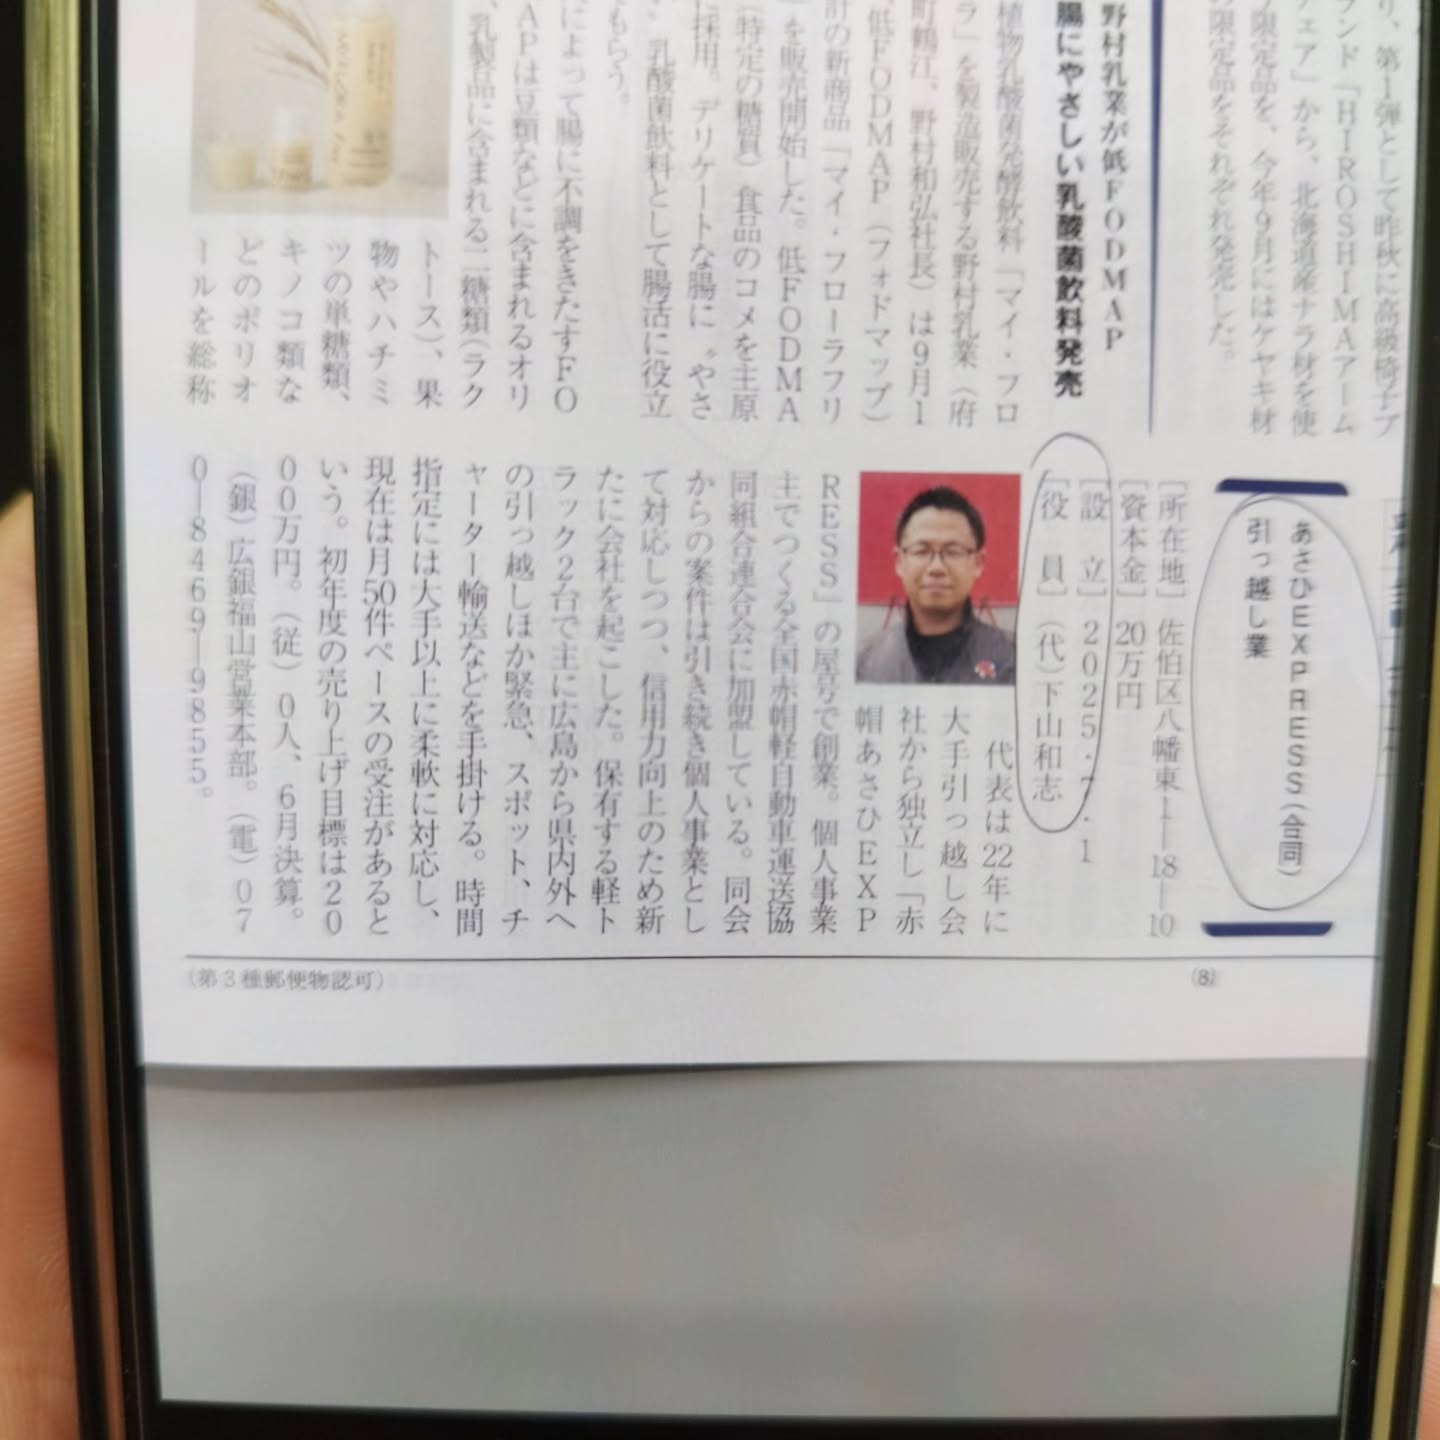 り、第1弾として昨秋に高級椅子ブ
ランド「HIROSHIMAアーム
チェア」から、北海道産ナラ材を使
う限定品を、今年9月にはケヤキ材
の限定品をそれぞれ発売した。
野村乳業が低FODMAP
腸にやさしい乳酸菌飲料発売
植物乳酸菌発酵飲料「マイ・フロ
ラ」を製造販売する野村乳業(府
町鶴江、野村和弘社長)は9月1
低FODMAP(フォドマップ)
計の新商品「マイ・フローラフリ
」を販売開始した。低FODMA
(特定の糖質)食品のコメを主原
に採用。デリケートな腸に〝やさ
乳酸菌飲料として腸活に役立
もらう。
によって腸に不調をきたすFO
APは豆類などに含まれるオリ
乳製品に含まれる二糖類(ラク
トース)、果
物やハチミ
ツの単糖類、
キノコ類な
どのポリオ
ールを総称
あさひEXPRESS(合同)
引っ越し業
[所在地]佐伯区八幡東1―18―10
[資本金]20万円
[設 立]2025・7・1
[役 員](代)下山和志
代表は22年に
大手引っ越し会
社から独立し「赤
帽あさひEXP
RESS」の屋号で創業。個人事業
主でつくる全国赤帽軽自動車運送協
同組合連合会に加盟している。同会
からの案件は引き続き個人事業とし
て対応しつつ、信用力向上のため新
たに会社を起こした。保有する軽ト
ラック2台で主に広島から県内外へ
の引っ越しほか緊急、スポット、チ
ャーター輸送などを手掛ける。時間
指定には大手以上に柔軟に対応し、
現在は月50件ペースの受注があると
いう。初年度の売り上げ目標は20
00万円。(従)0人、6月決算。
(銀)広銀福山営業本部。(電)07
0―8469―9855。
(8)
(第3種郵便物認可)